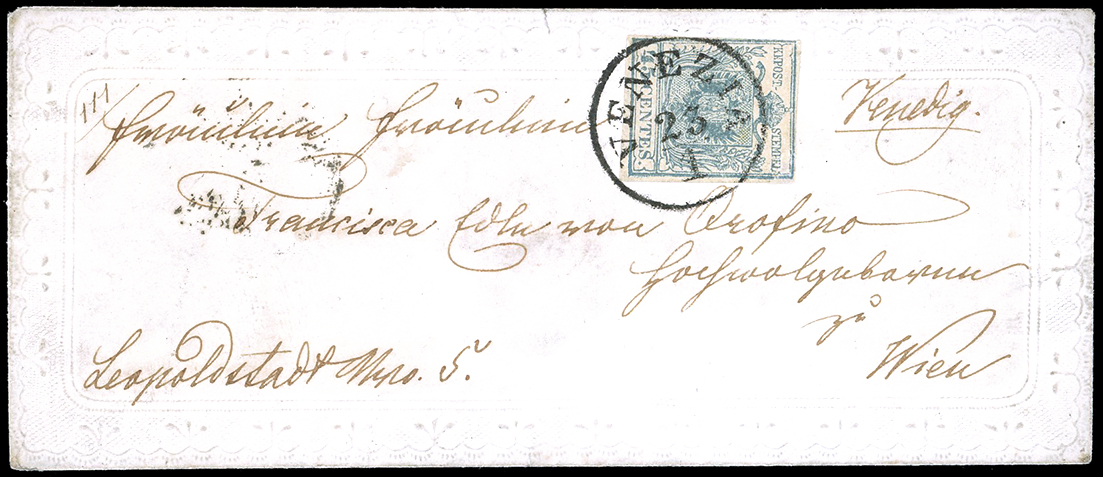 111
Fräulein Fräulein
Venedig.
Francisca Edle von Orofino
Hochwolgeboren
zu
Wien
Leopoldstadt Nro. 5.
VENEZIA
23
1
KKPOST-
STEMPEL
CENTES